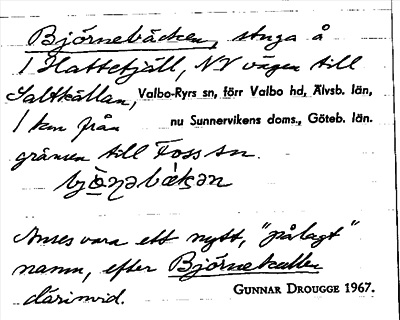 Björnebäcken, stuga å
1 Hattefjäll, NV vägen till
Saltkällan, Valbo-Ryrs sn, förr Valbo hd, Älvsb. län,
1 km från nu Sunnervikens doms., Göteb. län.
gränsen till Foss sn.
Anses vara ett nytt, "pålagt"
namn, efter Björnekullen
därinvid. GUNNAR DROUGGE 1967.